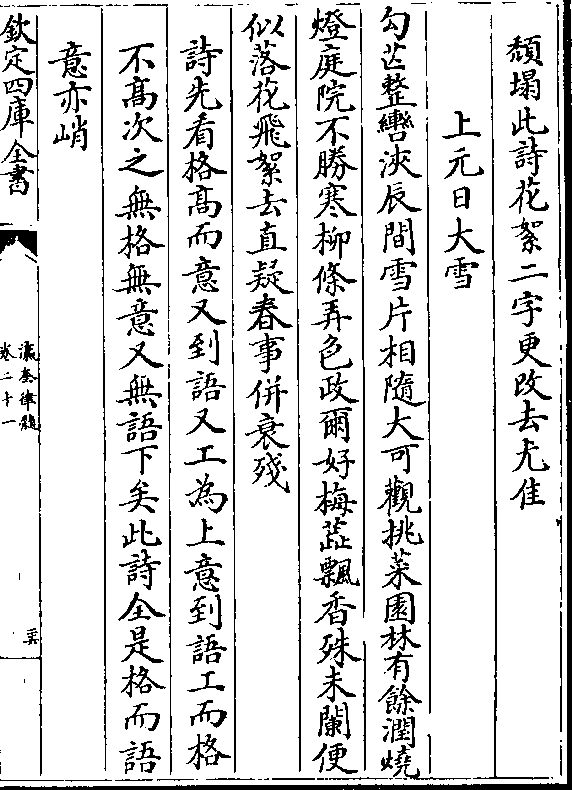 頽塌此詩花絮二字更改去尤佳
上元日大雪
勾芒整轡浹辰間雪片相隨大可觀挑菜園林有餘潤燒
燈庭院不勝寒柳條弄色政爾好梅蕋飄香殊未闌便
似落花飛絮去直疑春事併衰殘
詩先看格高而意又到語又工為上意到語工而格
不高次之無格無意又無語下矣此詩全是格而語
意亦峭
欽定四庫全書
瀛奎律髓
卷二十一